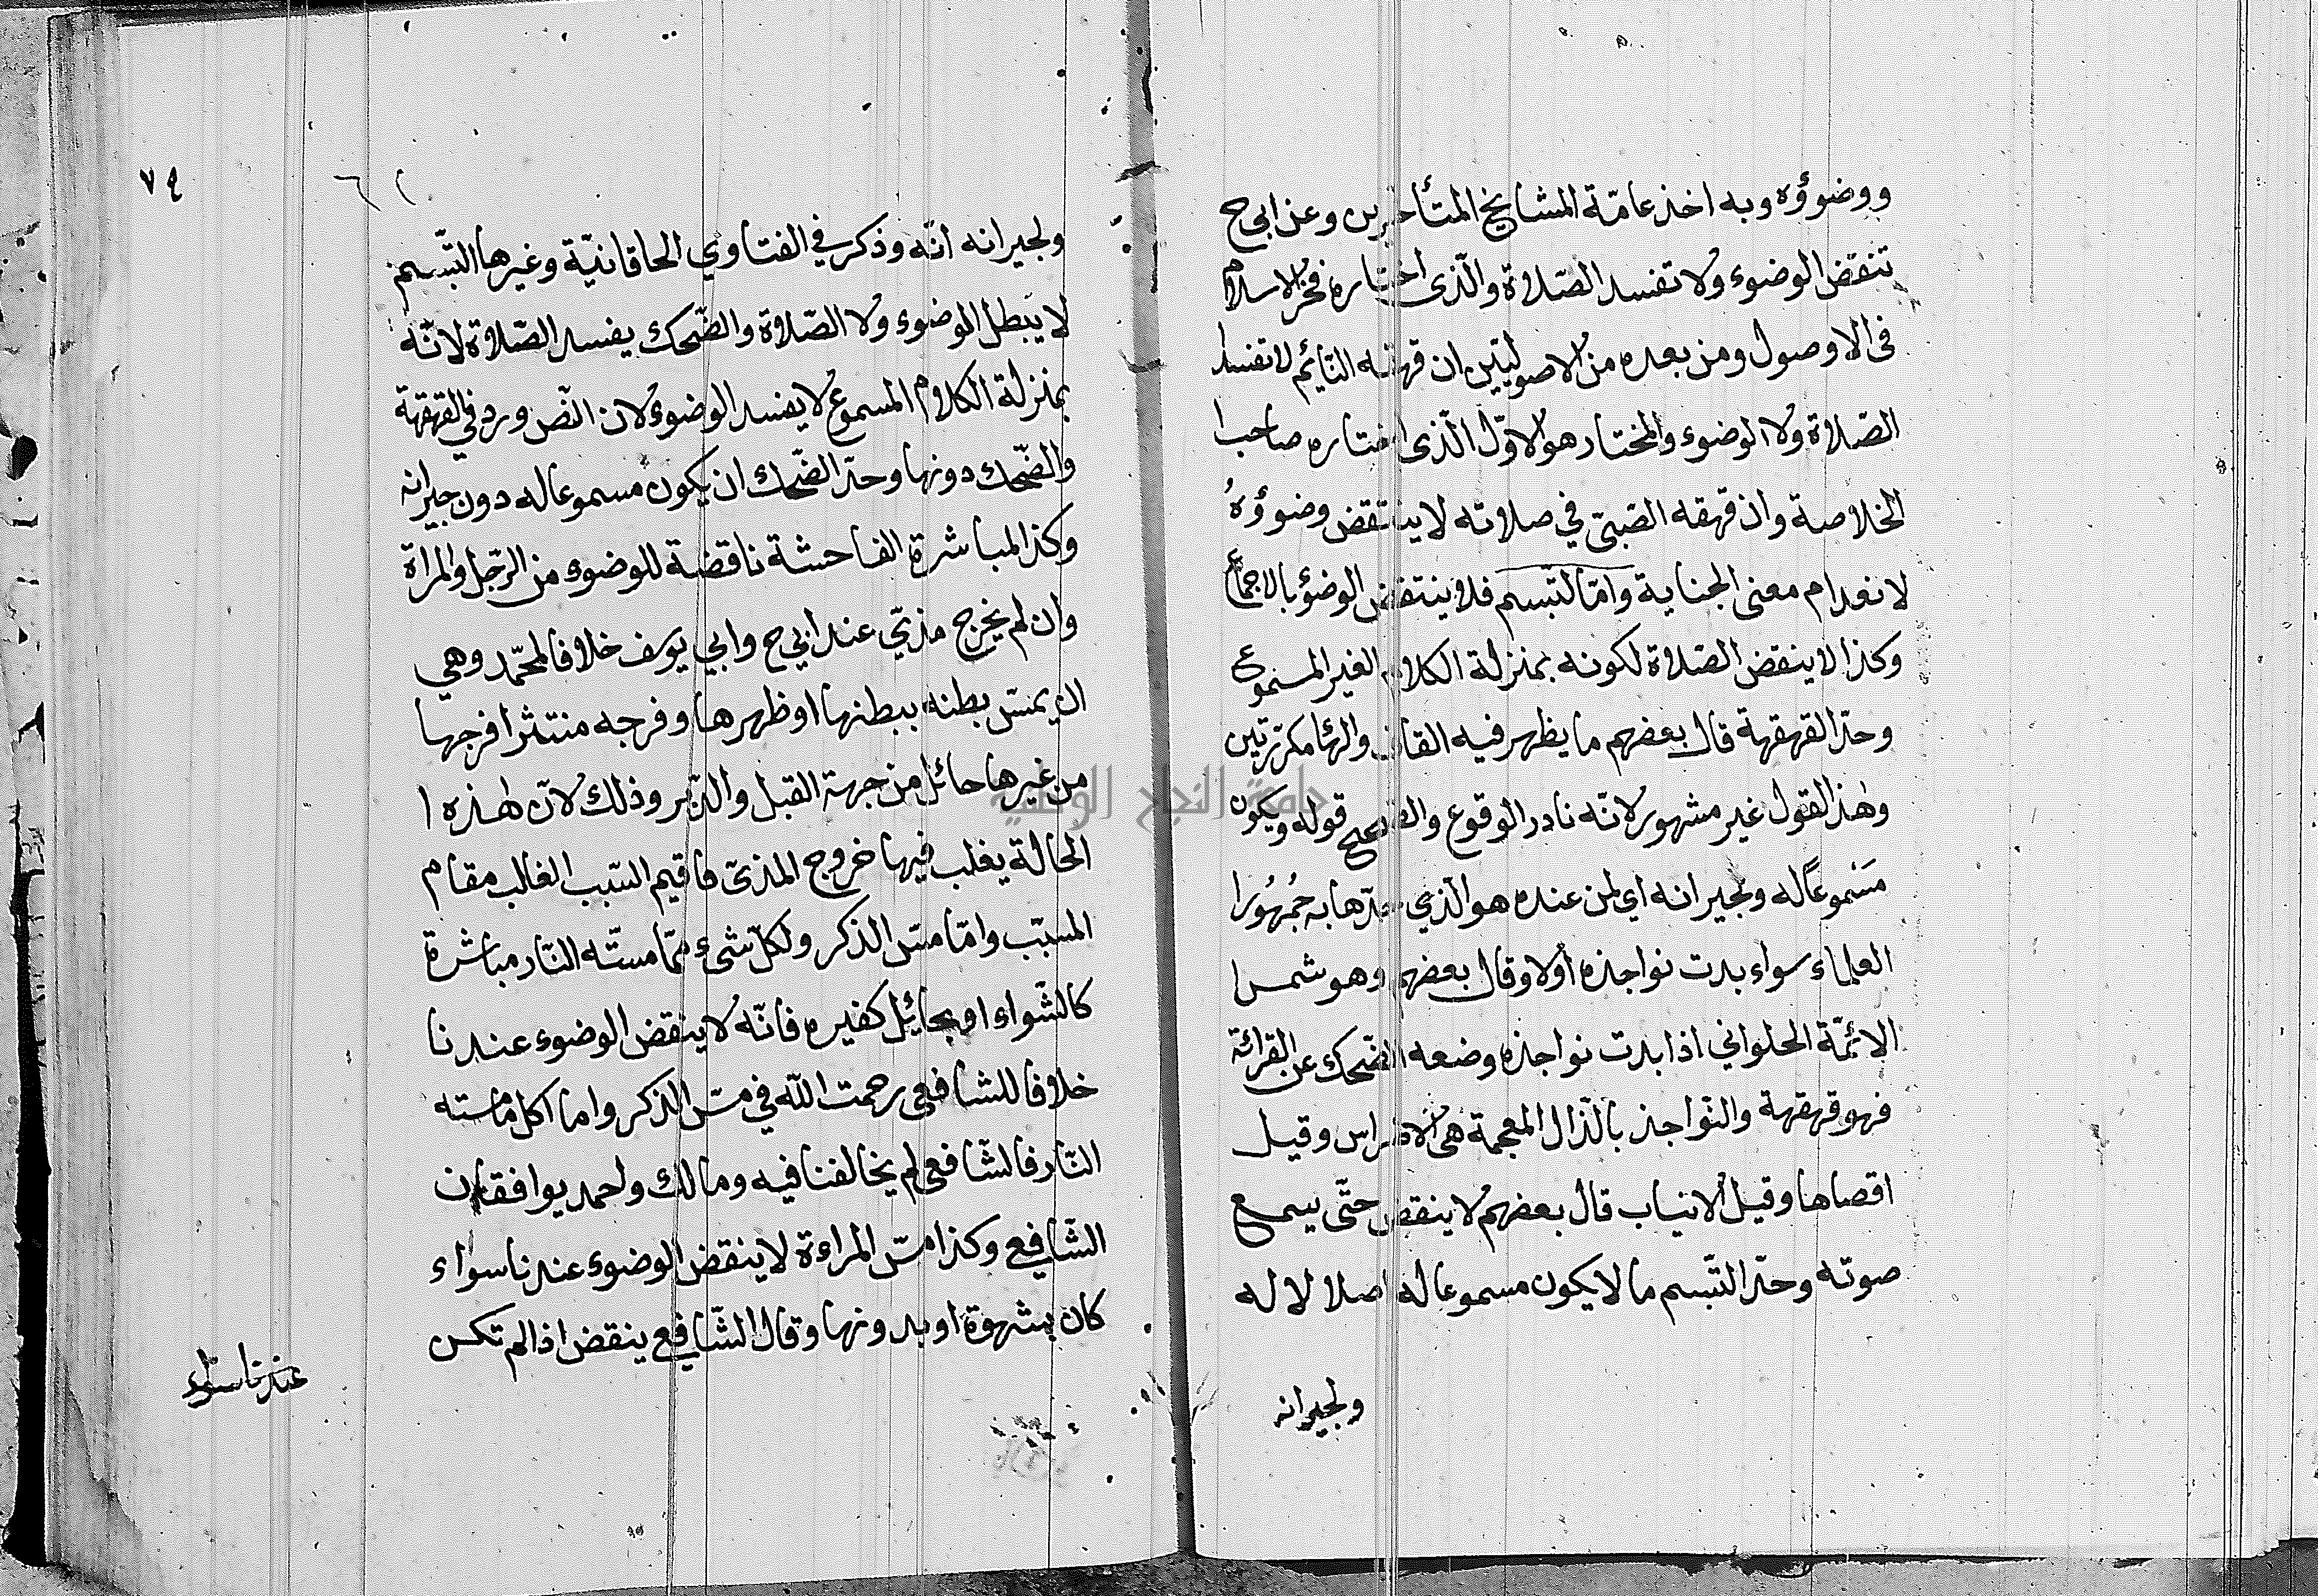 ووضوؤه وبه اخذ عامّة المشايخ المتأخرين وعن ابي ح
تنقض الوضوء ولا تفسد الصّلاة والّذى اختاره فخر الاسلام
فى الاوصول ومن بعده من الاصوليّين ان قهقهة النّائم لا تفسد
الصّلاة ولا الوضوء والمختار هو الاوّل الّذى اختاره صاحب ا
الخلاصة وان قهقه الصّبىّ في صلاته لا ينتقض وضوؤهُ
لانعدام معنى الجناية وامّا التّبسم فلا ينتقض الوضؤ بالاجماع
وكذا لا ينقض الصّلاة لكونه بمنزلة الكلام الغير المسموع
وحدّ القهقهة قال بعضهم ما يظهر فيه القاف والهٔا مكرّرتين
وهٰذ القول غير مشهور لانّه نادر الوقوع والصّحيح قوله ويكون
مَسْموعًا له ولجيرانه اي لمن عنده هو الّذي حدّها به جُمهُور ا
العلماء سواء بدت نواجذه أولا وقال بعضهم وهو شمس ا
الائمّة الحلواني اذا بدت نواجذه وضعه الضّحك عن القرائة
فهو قهقهة والنّواجذ بالذّال المعجمة هى الاضراس وقيل
اقصاها وقيل الانياب قال بعضهم لا ينقض حتّى يسمع
صوته وحدّ التّبسم ما لا يكون مسموعا له اصلا لا له
ولجيرانه
٧٤
ولجيرانه انّه وذكر في الفتاوي الحاقانيّة وغيرها التّبسم
لا يبطل الوضوء ولا الصّلاة والضّحك يفسد الصّلاة لانّه
بمنزلة الكلام المسموع لا يفسد الوضوء لان النّص ورد في القهقهة
والضّحك دونها وحدّ الضّحك ان يكون مسموعا له دون جيرانه
وكذ المباشرة الفاحشة ناقضة للوضوء من الرّجل والمراة
وان لم يخرج مذيّ عند ابي ح وابي يوسف خلافا لمحمّد وهي
ان يمسّ بطنه ببطنها او ظهرها وفرجه منتشرا فرجها
من غيرها حائل من جهة القبل والدّبر وذلك لانّ هٰذه ا
الحالة يغلب فيها خروج المذىّ فاقيم السّبب الغالب مقام
المسبّب وامّا مسّ الذكر ولكلّ شىء ممّا مسّته النّار مباشرة
كالشّواء او بحائل كغيره فانّه لا ينقض الوضوء عندنا
خلافا للشافعى رحمت اللّه في مسّ الذكر واما اكل ما مسته
النّار فالشّافعى لم يخالفنا فيه ومالك واحمد يوافقان
الشّافعي وكذا مسّ المراءة لا ينقض الوضوء عندنا سواء
كان بشهوة او بدونها وقال الشّافعي ينقض اذا لم تكن
عندنا سواء
جامعة النجاح الوطنية